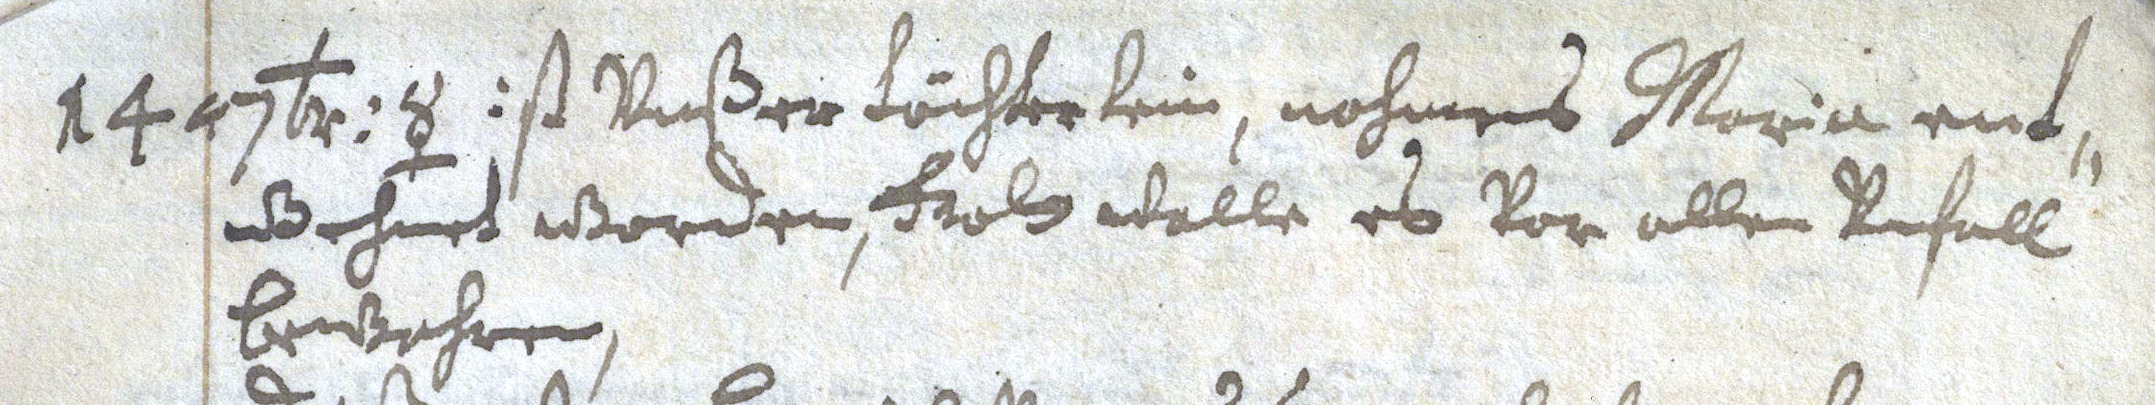 14 47br: ☿ ist Vnßer töchterlein, nahmens Maria ent„
wehnet worden, Gott wolle es Vor allen Vnfall
bewahren,